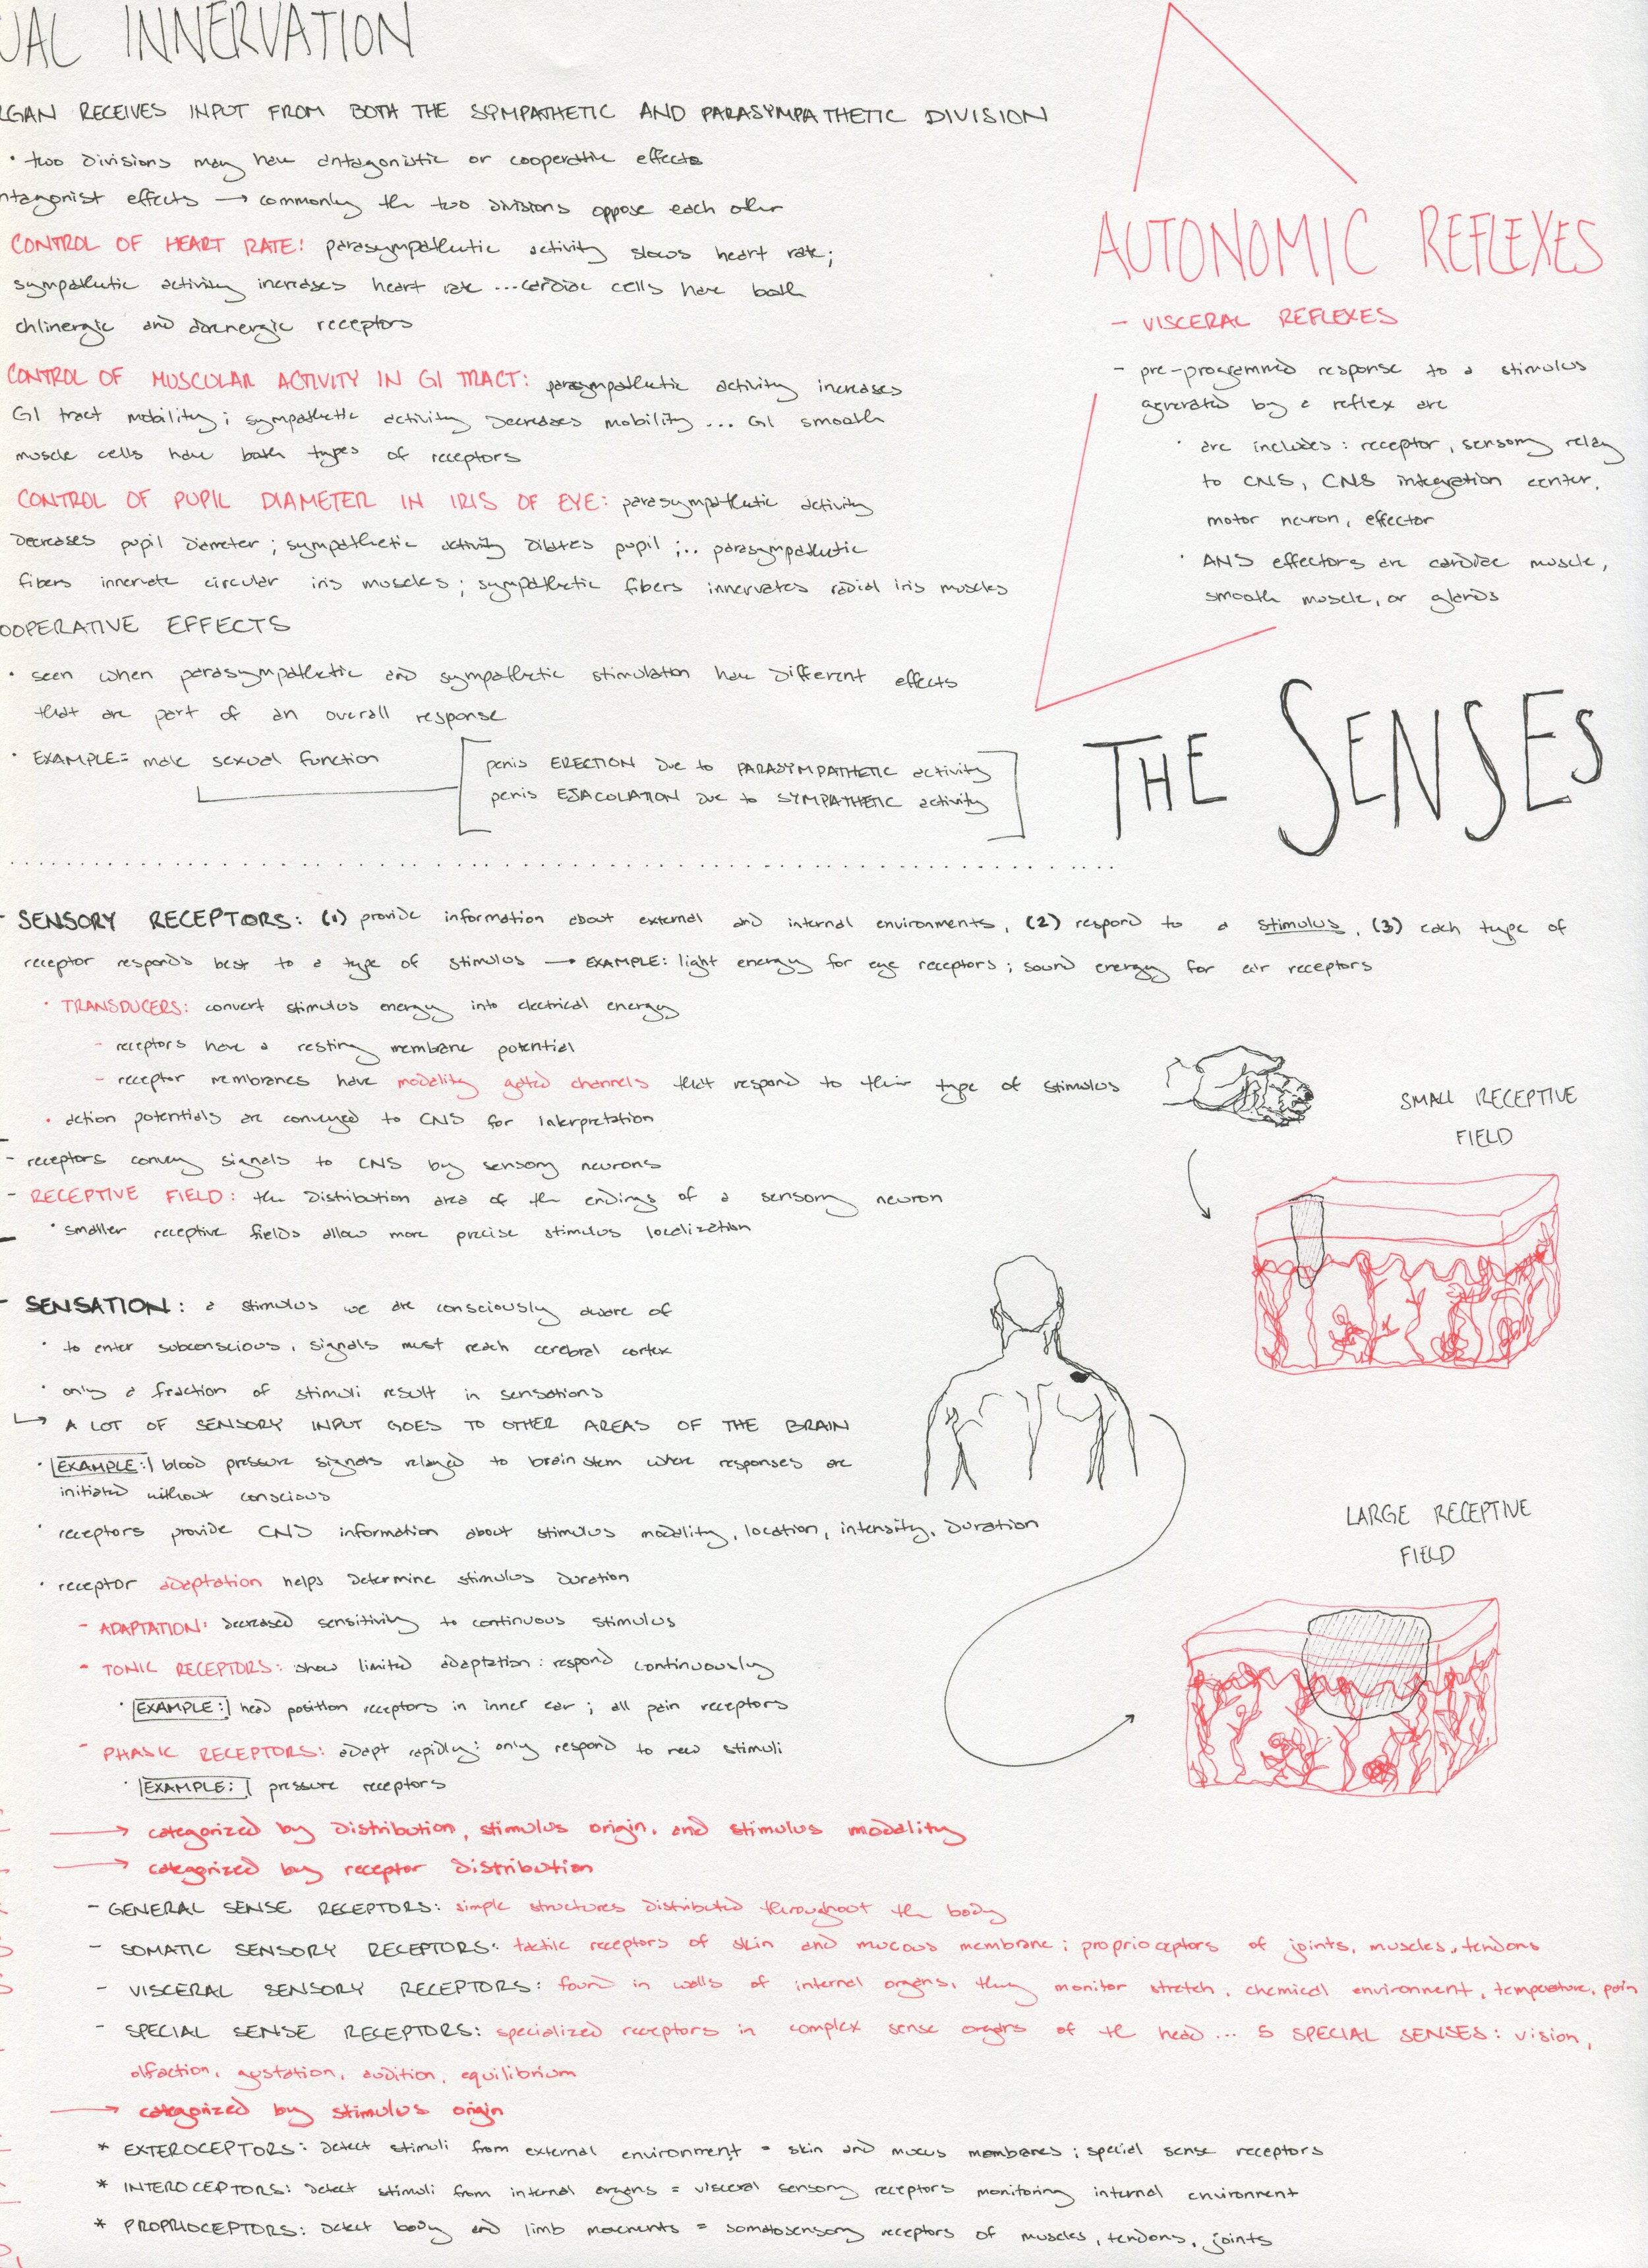 UAL INNERVATION
RGAN RECEIVES INPUT FROM BOTH THE SYMPATHETIC AND PARASYMPATHETIC DIVISION
• two divisions may have antagonistic or cooperative effects
ntagonist effects → commonly the two divisions oppose each other
CONTROL OF HEART RATE: parasympathetic activity slows heart rate;
sympathetic activity increases heart rate ...cardiac cells have both
chlinergic and adrenergic receptors
CONTROL OF MUSCULAR ACTIVITY IN GI TRACT: parasympathetic activity increases
GI tract mobility; sympathetic activity decreases mobility ... GI smooth
muscle cells have both types of receptors
CONTROL OF PUPIL DIAMETER IN IRIS OF EYE: parasympathetic activity
decreases pupil diameter; sympathetic activity dilates pupil ;.. parasympathetic
fibers innervate circular iris muscles; sympathetic fibers innervates radial iris muscles
OOPERATIVE EFFECTS
• seen when parasympathetic and sympathetic stimulation have different effects
that are part of an overall response
• EXAMPLE= male sexual function
penis ERECTION due to PARASYMPATHETIC activity
penis EJACOLATION due to SYMPATHETIC activity
AUTONOMIC REFLEXES
- VISCERAL REFLEXES
- pre-programmed response to a stimulus
generated by a reflex arc
• arc includes: receptor, sensory relay
to CNS, CNS integration center,
motor neuron, effector
• ANS effectors are cardiac muscle,
smooth muscle, or glands
THE SENSES
- SENSORY RECEPTORS: (1) provide information about external and internal environments, (2) respond to a stimulus, (3) each type of
receptor responds best to a type of stimulus → EXAMPLE: light energy for eye receptors; sound energy for ear receptors
• TRANSDUCERS: convert stimulus energy into electrical energy
- receptors have a resting membrane potential
- receptor membranes have modality gated channels that respond to their type of stimulus
• action potentials are conveyed to CNS for interpretation
- receptors convey signals to CNS by sensory neurons
- RECEPTIVE FIELD: the distribution area of the endings of a sensory neuron
• smaller receptive fields allow more precise stimulus localization
SMALL RECEPTIVE
FIELD
- SENSATION: a stimulus we are consciously aware of
• to enter subconscious, signals must reach cerebral cortex
• only a fraction of stimuli result in sensations
↳ A LOT OF SENSORY INPUT GOES TO OTHER AREAS OF THE BRAIN
• EXAMPLE: blood pressure signals relayed to brain stem where responses are
initiated without conscious
• receptors provide CNS information about stimulus modality, location, intensity, duration
• receptor adaptation helps determine stimulus duration
- ADAPTATION: decreased sensitivity to continuous stimulus
- TONIC RECEPTORS: show limited adaptation: respond continuously
• EXAMPLE: head position receptors in inner ear; all pain receptors
- PHASIC RECEPTORS: adapt rapidly: only respond to new stimuli
• EXAMPLE: pressure receptors
LARGE RECEPTIVE
FIELD
→ categorized by distribution, stimulus origin, and stimulus modality
→ categorized by receptor distribution
- GENERAL SENSE RECEPTORS: simple structures distributed throughout the body
- SOMATIC SENSORY RECEPTORS: tactile receptors of skin and mucous membrane; proprioceptors of joints, muscles, tendons
- VISCERAL SENSORY RECEPTORS: found in walls of internal organs, they monitor stretch, chemical environment, temperature, pain
- SPECIAL SENSE RECEPTORS: specialized receptors in complex sense organs of the head ... 5 SPECIAL SENSES: vision,
olfaction, gustation, audition, equilibrium
→ categorized by stimulus origin
* EXTEROCEPTORS: detect stimuli from external environment = skin and mucus membranes; special sense receptors
* INTEROCEPTORS: detect stimuli from internal organs = visceral sensory receptors monitoring internal environment
* PROPRIOCEPTORS: detect body and limb movements = somatosensory receptors of muscles, tendons, joints